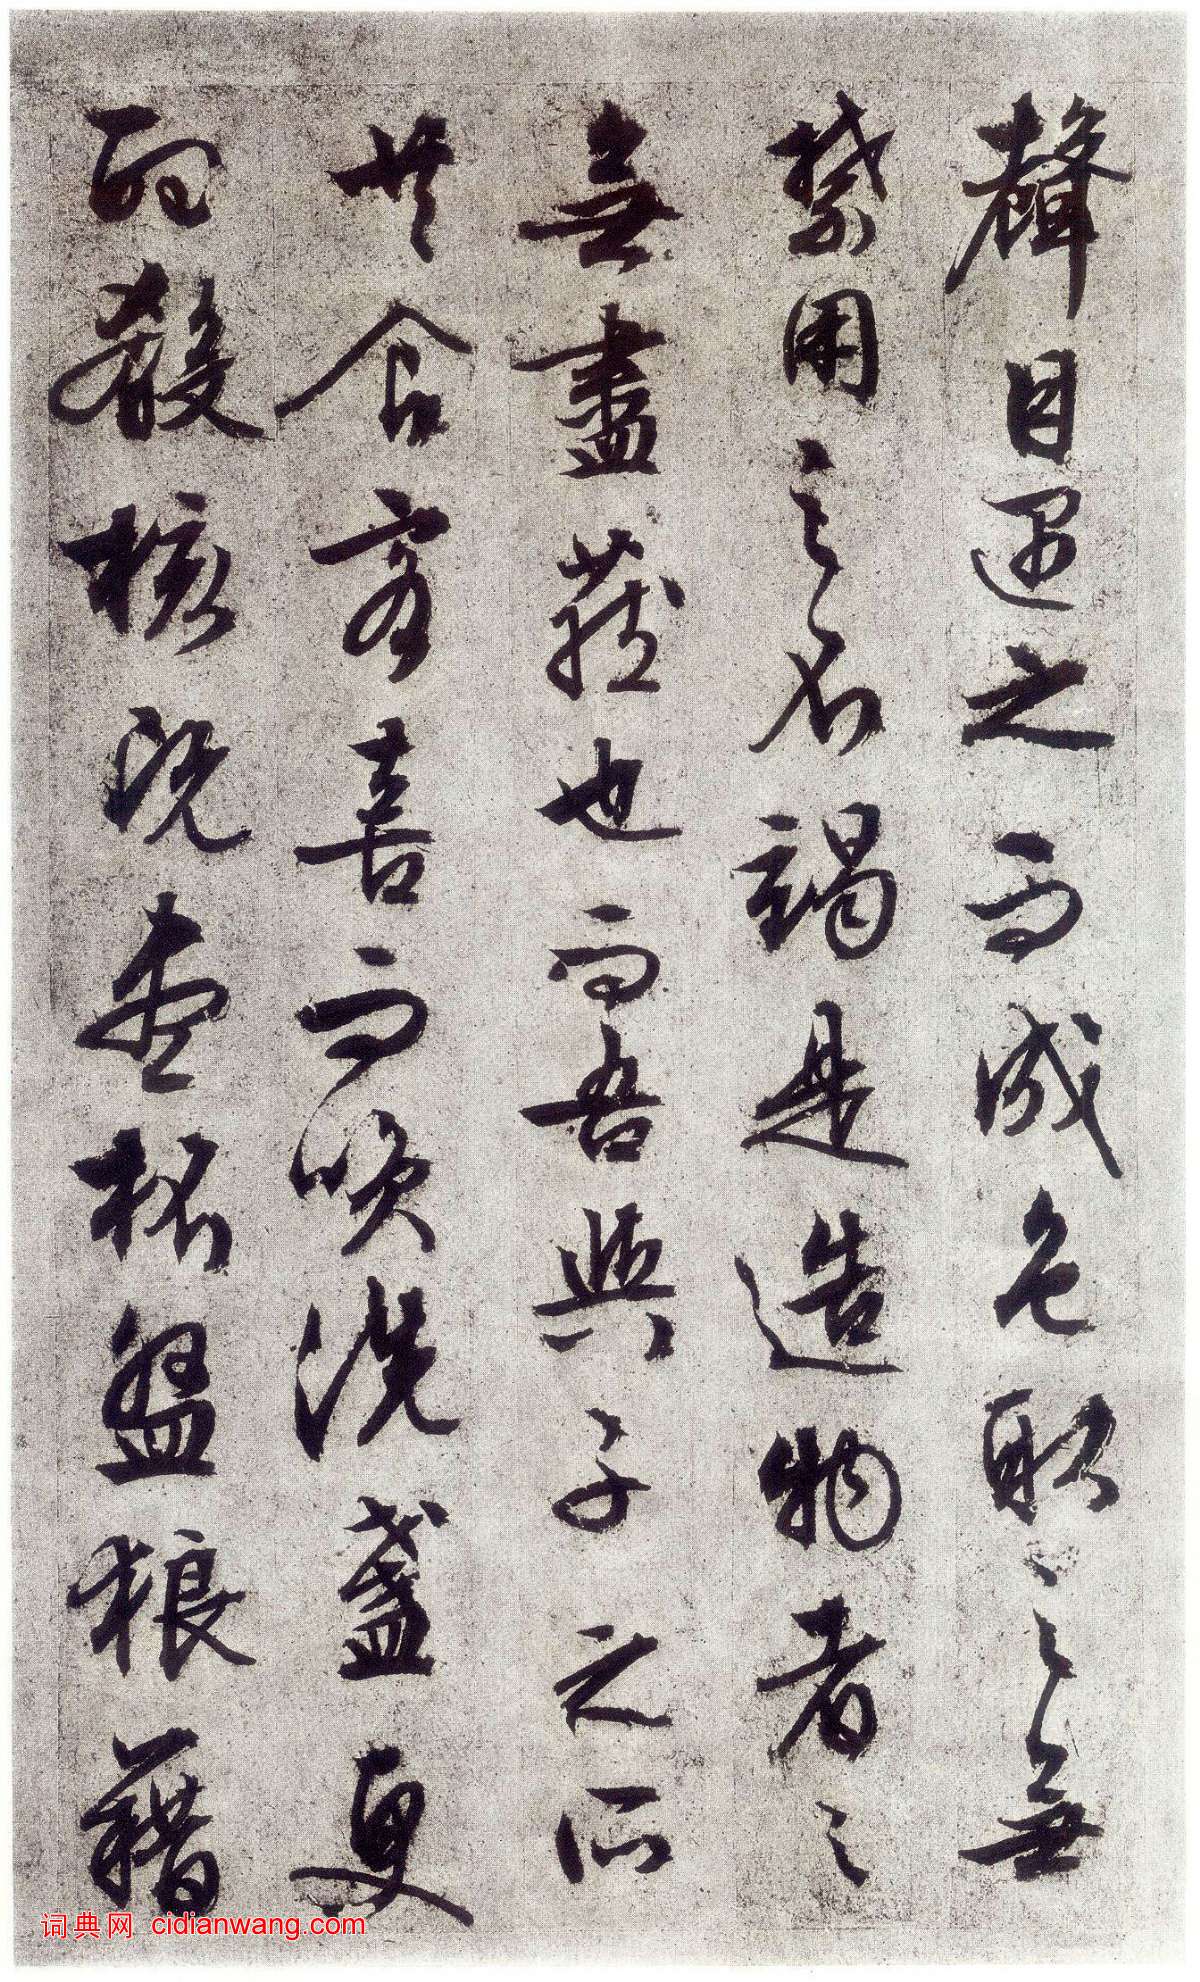 聲目遇之而成色取之無
禁用之不竭是造物者之
無盡藏也而吾與子之所
共食客喜而咲洗盞更
酌殽核既盡桮盤狼藉
词典网 cidianwang.com